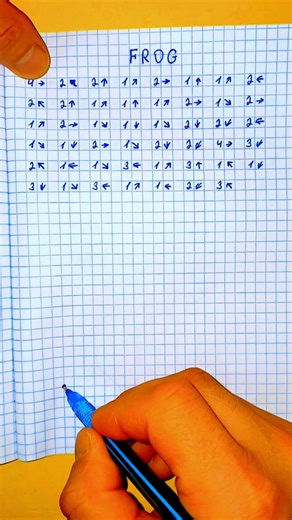 FROG
4→ 2↖ 2↑ 1↗ 2→ 1↑ 1↗ 2←
2↖ 2↑ 1↗ 1↑ 1↗ 2→ 1↘ 2→
1↗ 2→ 1↘ 1↓ 1↘ 2↓ 2↙ 2←
1↘ 1↓ 2→ 1↘ 2↓ 2↙ 4→ 3↙
2↖ 1← 1↘ 3← 1↗ 3↑ 1↖ 1↓
3↓ 1↘ 3← 1↗ 1← 2↙ 3↖